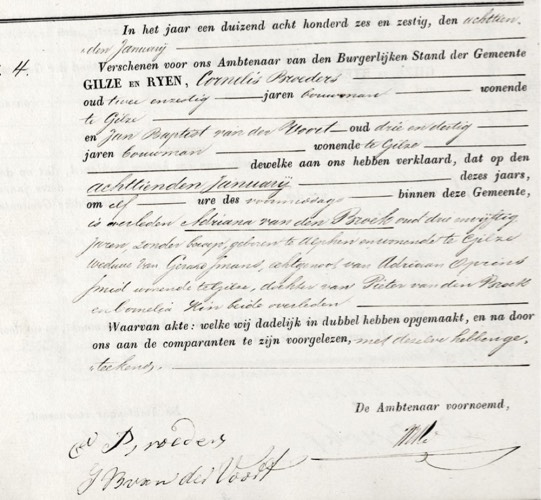 In het jaar een duizend acht honderd zes en zestig, den achttien-
den Januarij
4.
Verschenen voor ons Ambtenaar van den Burgerlijken Stand der Gemeente
GILZE EN RYEN, Cornelis Broeders
oud twee en zestig jaren bouwman wonende
te Gilze
en Jan Baptist van der Voort oud drie en dertig
jaren bouwman wonende te Gilze
dewelke aan ons hebben verklaard, dat op den
achttienden Januarij dezes jaars,
om elf ure des voormiddags binnen deze Gemeente,
is overleden Adriana van den Broek oud drie en vijftig
jaren, zonder beroep, geboren te Alphen en wonende te Gilze
weduwe van Gerard Jmans, echtgenoot van Adriaan Oprins
meid wonende te Gilze, dochter van Pieter van den Broek
en Cornelia beide overleden
Waarvan akte: welke wij dadelijk in dubbel hebben opgemaakt, en na door
ons aan de comparanten te zijn voorgelezen, met dezelve hebben ge-
teekend.
De Ambtenaar voornoemd,
C Broeders
J B van der Voort